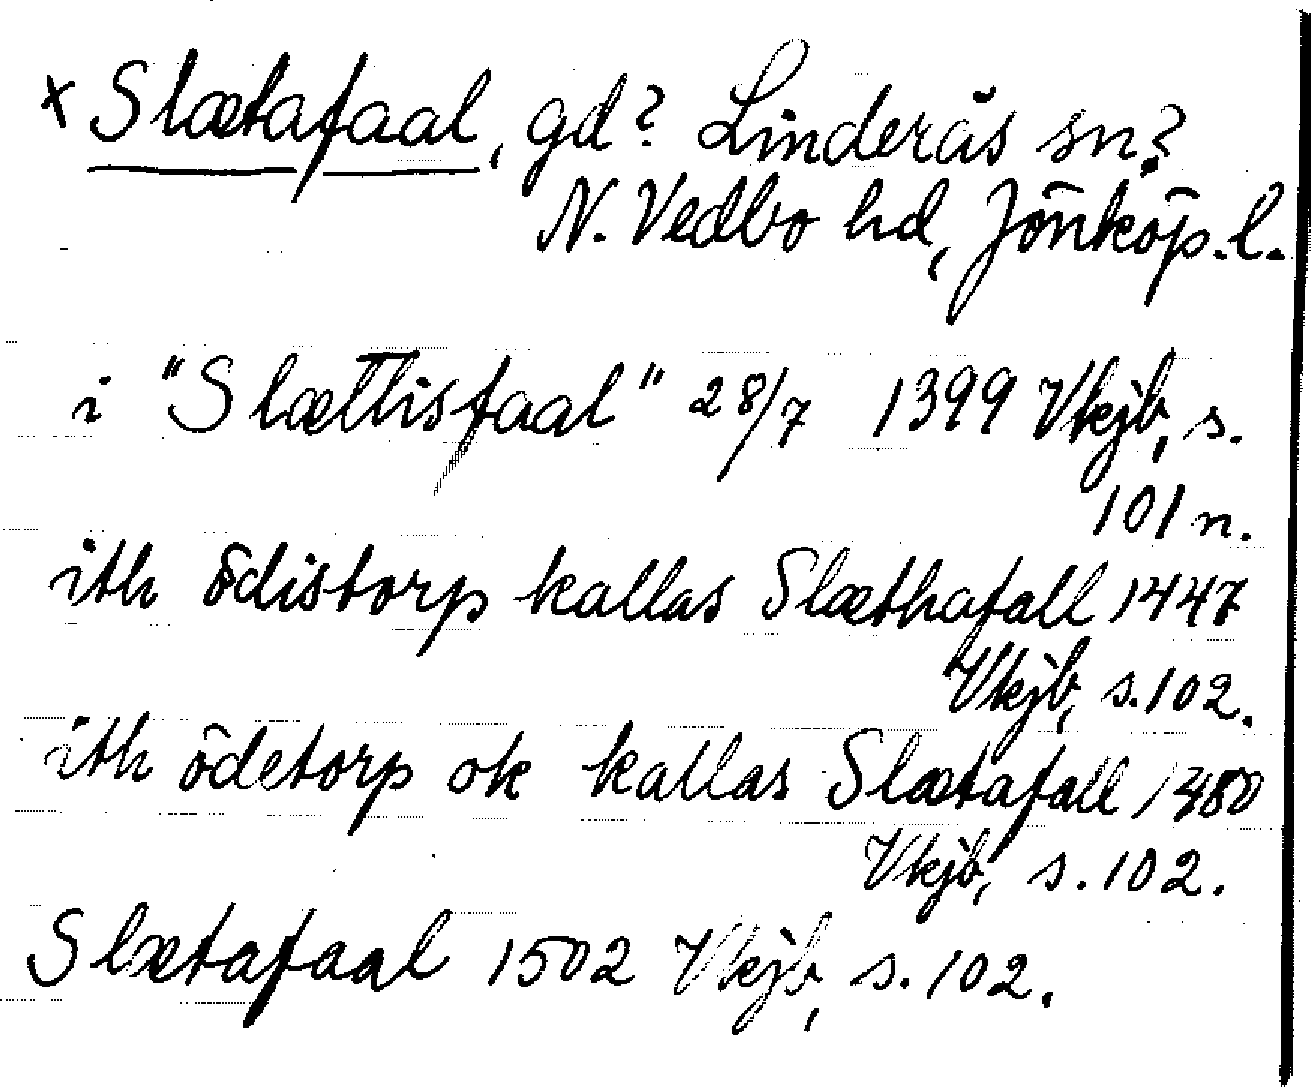 x Slætafaal, gd? Linderås sn?
N. Vedbo hd, Jönköp. l.
i "Slættisfaal" 28/7 1399 Vkjb, s.
101 n.
ith ödistorp kallas Slæthafall 1447
Vkjb, s. 102.
ith ödetorp ok kallas Slætafall 1480
Vkjb, s. 102.
Slætafaal 1502 Vkjb, s. 102.